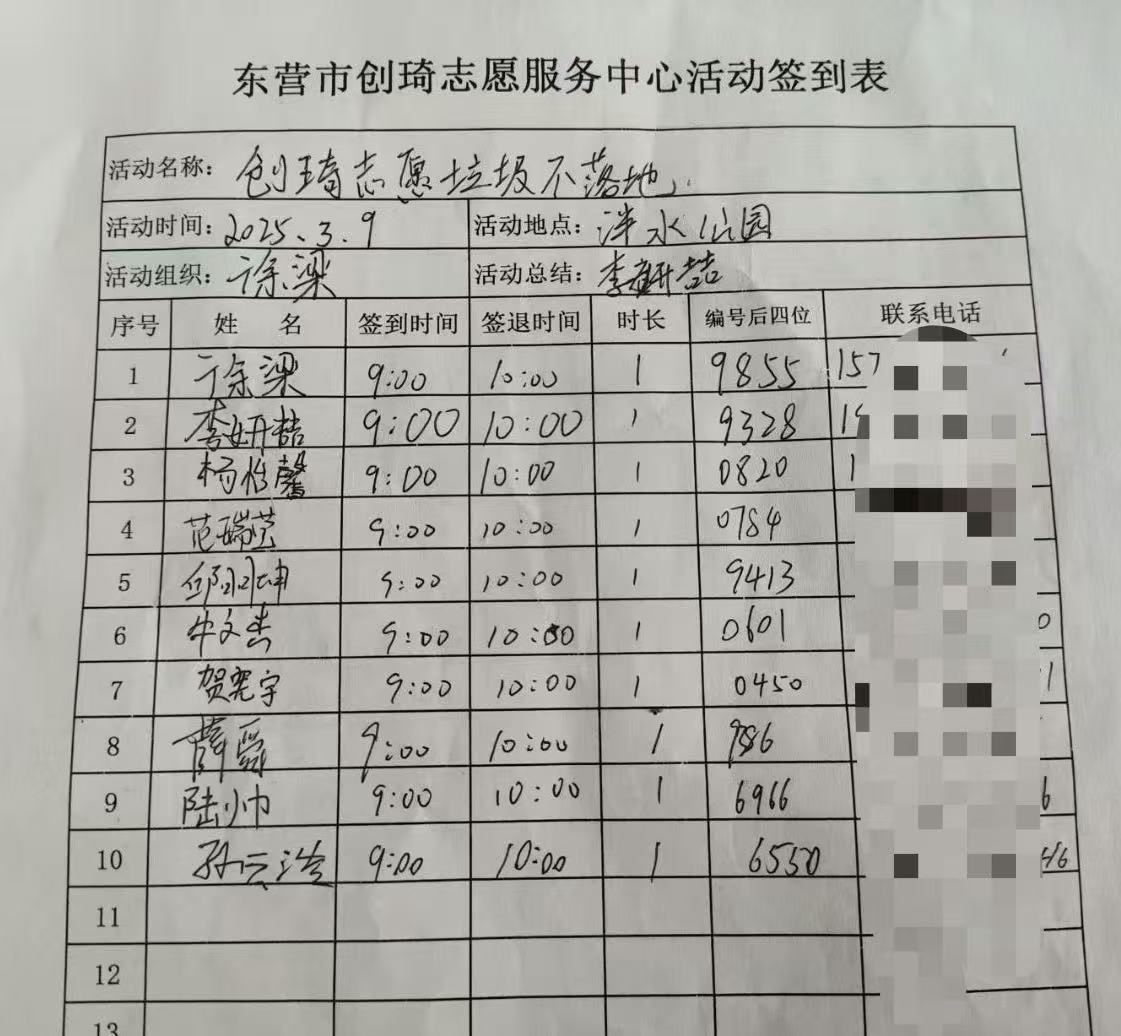 东营市创琦志愿服务中心活动签到表
活动名称: 创琦志愿垃圾不落地.
活动时间: 2025.3.9 活动地点: 泮水公园
活动组织: 徐梁 活动总结: 李妍喆
序号 姓名 签到时间 签退时间 时长 编号后四位 联系电话
1 徐梁 9:00 10:00 1 9855 157
2 李妍喆 9:00 10:00 1 9328
3 杨怡馨 9:00 10:00 1 0820 1
4 范瑞莹 9:00 10:00 1 0784
5 9:00 10:00 1 9413
6 牛文杰 9:00 10:00 1 0601 0
7 贺宪宇 9:00 10:00 1 0450 1
8 薛舜 9:00 10:00 1
9 陆帅 9:00 10:00 1 6966 6
10 孙云浩 9:00 10:00 1 6550 46
11
12
13